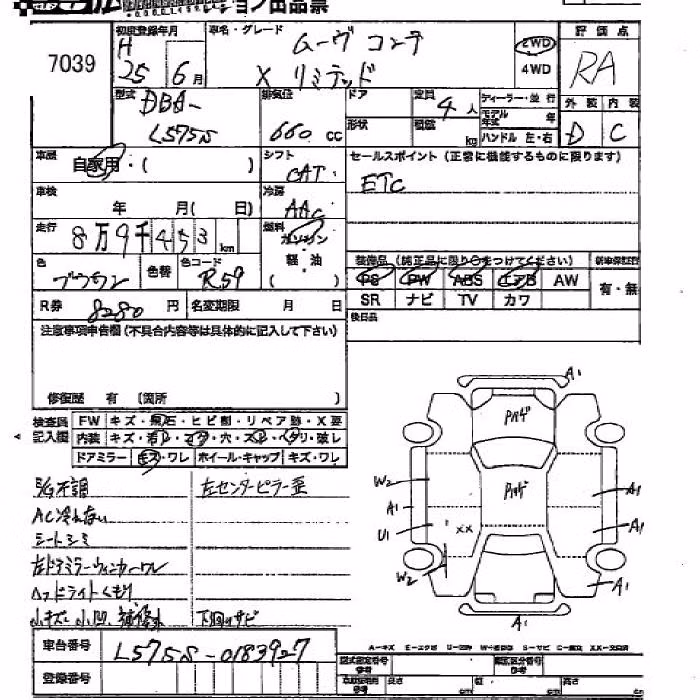 ョン出品票
7039
初度登録年月
H
25 6月
車名・グレード
ムーヴ コンテ
X リミテッド
2WD
4WD
評価点
RA
型式
DBA-
L575S
排気位
660 cc
ドア
形状
定員
4人
積載
kg
ディーラー・並行
モデル年式 年
ハンドル 左・右
外装 内装
D C
車歴
自家用・( )
シフト
CAT
セールスポイント(正常に機能するものに限ります)
ETC
車検
年 月( 日)
冷房
AAC
走行
8万9千453 km
燃料
ガソリン
軽油
( )
装備品(純正品に限り○をつけてください)
新車保証書
PS PW ABS エアB AW
SR ナビ TV カワ
有・無
色
ブラウン
色替
色コード
R59
R券 8280 円
名変期限 月 日
後日品
注意事項申告欄(不具合内容等は具体的に記入して下さい)
修復歴 有 〔箇所 〕
検査員記入欄
FW キズ・飛石・ヒビ割・リペア跡・X要
内装 キズ・コゲ・穴・スレ・ヘタリ・破レ
ドアミラー キズ・ワレ ホイール・キャップ キズ・ワレ
E/G不調
左センターピラー歪
AC冷えない
シートシミ
左ドアミラーウィンカーワレ
ヘッドライトくもり
小キズ 小凹 補修跡
下回りサビ
A1
Pハゲ
Pハゲ
W2
A1
U1
XX
W2
A1
A1
A1
A1
A-キズ E-エクボ U-凹み W-補修跡 S-サビ C-腐食 XX-交換済
車台番号
L575S-0183927
登録番号
型式指定番号
類別区分番号
長さ cm
幅 cm
高さ cm